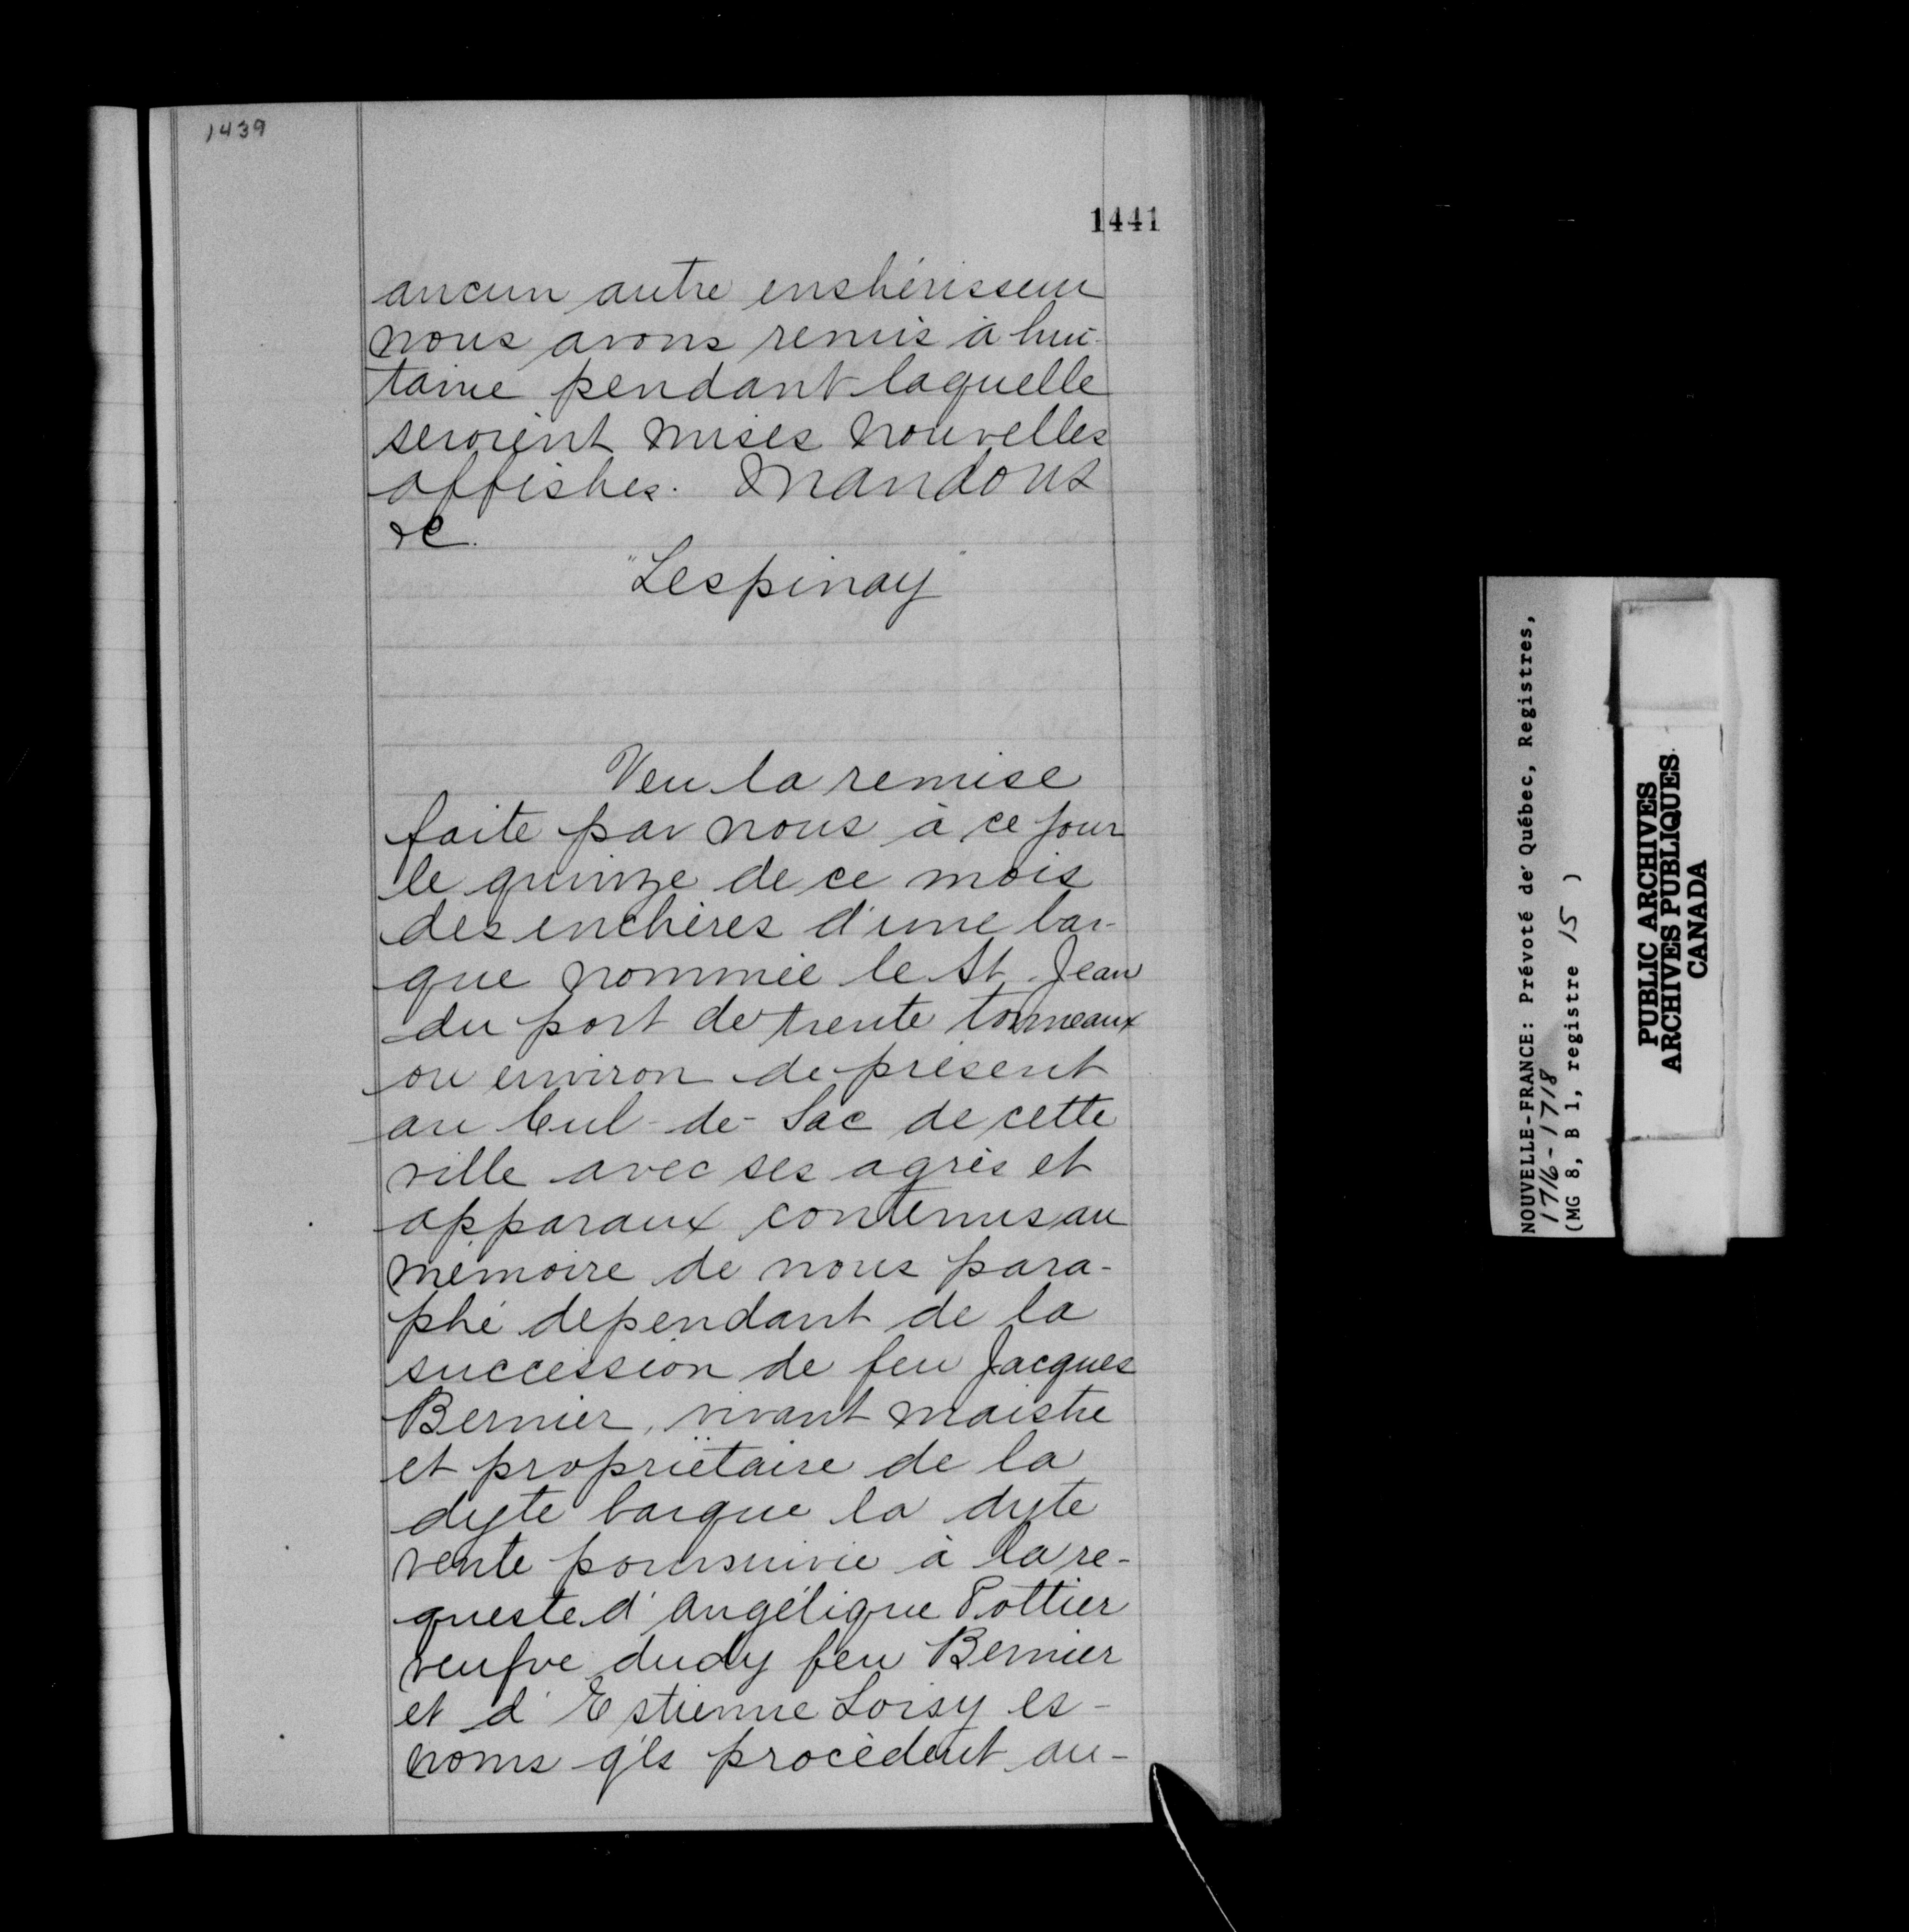 1439
1441
aucun autre enshérisseur
nous avons remis à hui-
taine pendant laquelle
seroient mises nouvelles
affishes. Mandons
&c.
"Lespinay"
Veu la remise
faite par nous à ce jour
le quinze de ce mois
des enchères d'une bar-
que nommée le St. Jean
du port de trente tonneaux
ou environ de présent
au Cul-de-Sac de cette
ville avec ses agrès et
apparaux contenus au
mémoire de nous para-
phé dépendant de la
succession de feu Jacques
Bernier, vivant maistre
et propriétaire de la
dyte barque la dyte
vente poursuivie à la re-
queste d'Angélique Pottier
veufve dudy feu Bernier
et d'Estienne Loisy es-
noms q'ls procèdent au-
NOUVELLE-FRANCE: Prévoté de Québec, Registres,
1716-1718
(MG 8, B 1, registre 15 )
PUBLIC ARCHIVES
ARCHIVES PUBLIQUES
CANADA